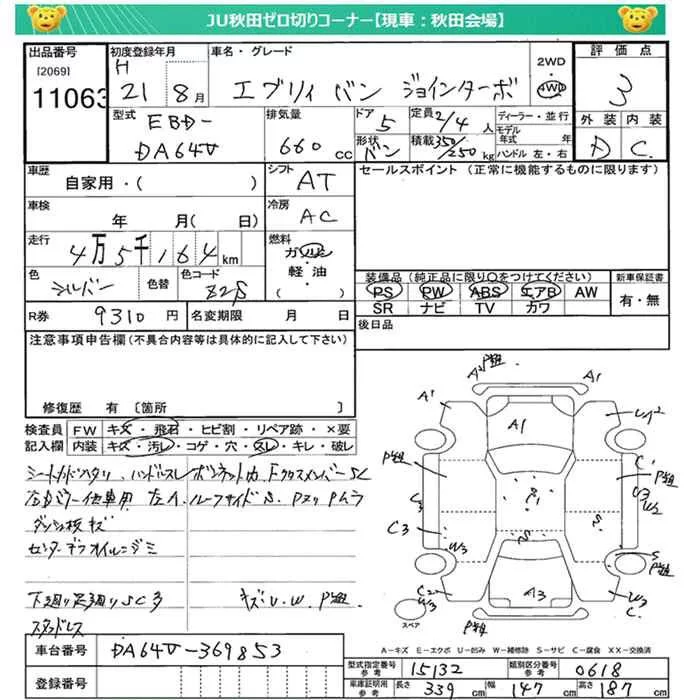 JU秋田ゼロ切りコーナー【現車：秋田会場】
出品番号
[2069]
11063
初度登録年月
H
21 8月
車名・グレード
エブリィ バン ジョインターボ
2WD
・
4WD
評価点
3
外装 内装
D C
型式
EBD-
DA64V
排気量
660 cc
ドア
5
形状
バン
定員 2/4 人
積載 350/250 kg
ディーラー・並行
モデル年式 年
ハンドル 左・右
車歴
自家用・( )
シフト
AT
セールスポイント（正常に機能するものに限ります）
車検
年 月(日)
冷房
AC
走行
4万5千164km
燃料
ガソリン
・
軽油
( )
色
シルバー
色替
色コード
Z2S
装備品(純正品に限り○をつけてください)
PS PW ABS エアB AW
SR ナビ TV カワ
新車保証書
有・無
R券 9310円
名変期限 月 日
後日品
注意事項申告欄(不具合内容等は具体的に記入して下さい)
修復歴 有 〔箇所 〕
検査員
記入欄
FW キズ・飛石・ヒビ割・リペア跡・×要
内装 キズ・汚レ・コゲ・穴・スレ・キレ・破レ
ハンドルスレ
ダッシュ板キズ
下廻り足廻りSC多
スタッドレス
キズ・U.W.P'組
P'組
A1
A1
A'
A1
U2
P'組
C'
P'組
C3
W3
S
S
P'組
C2
W3
A3
W3
C
P'組
スペア
A－キズ E－エクボ U－凹み W－補修跡 S－サビ C－腐食 XX－交換済
車台番号
DA64V-369853
登録番号
型式指定番号
参考
15132
類別区分番号
参考
0618
車庫証明用
参考
長さ 339 cm
幅 147 cm
高さ 187 cm